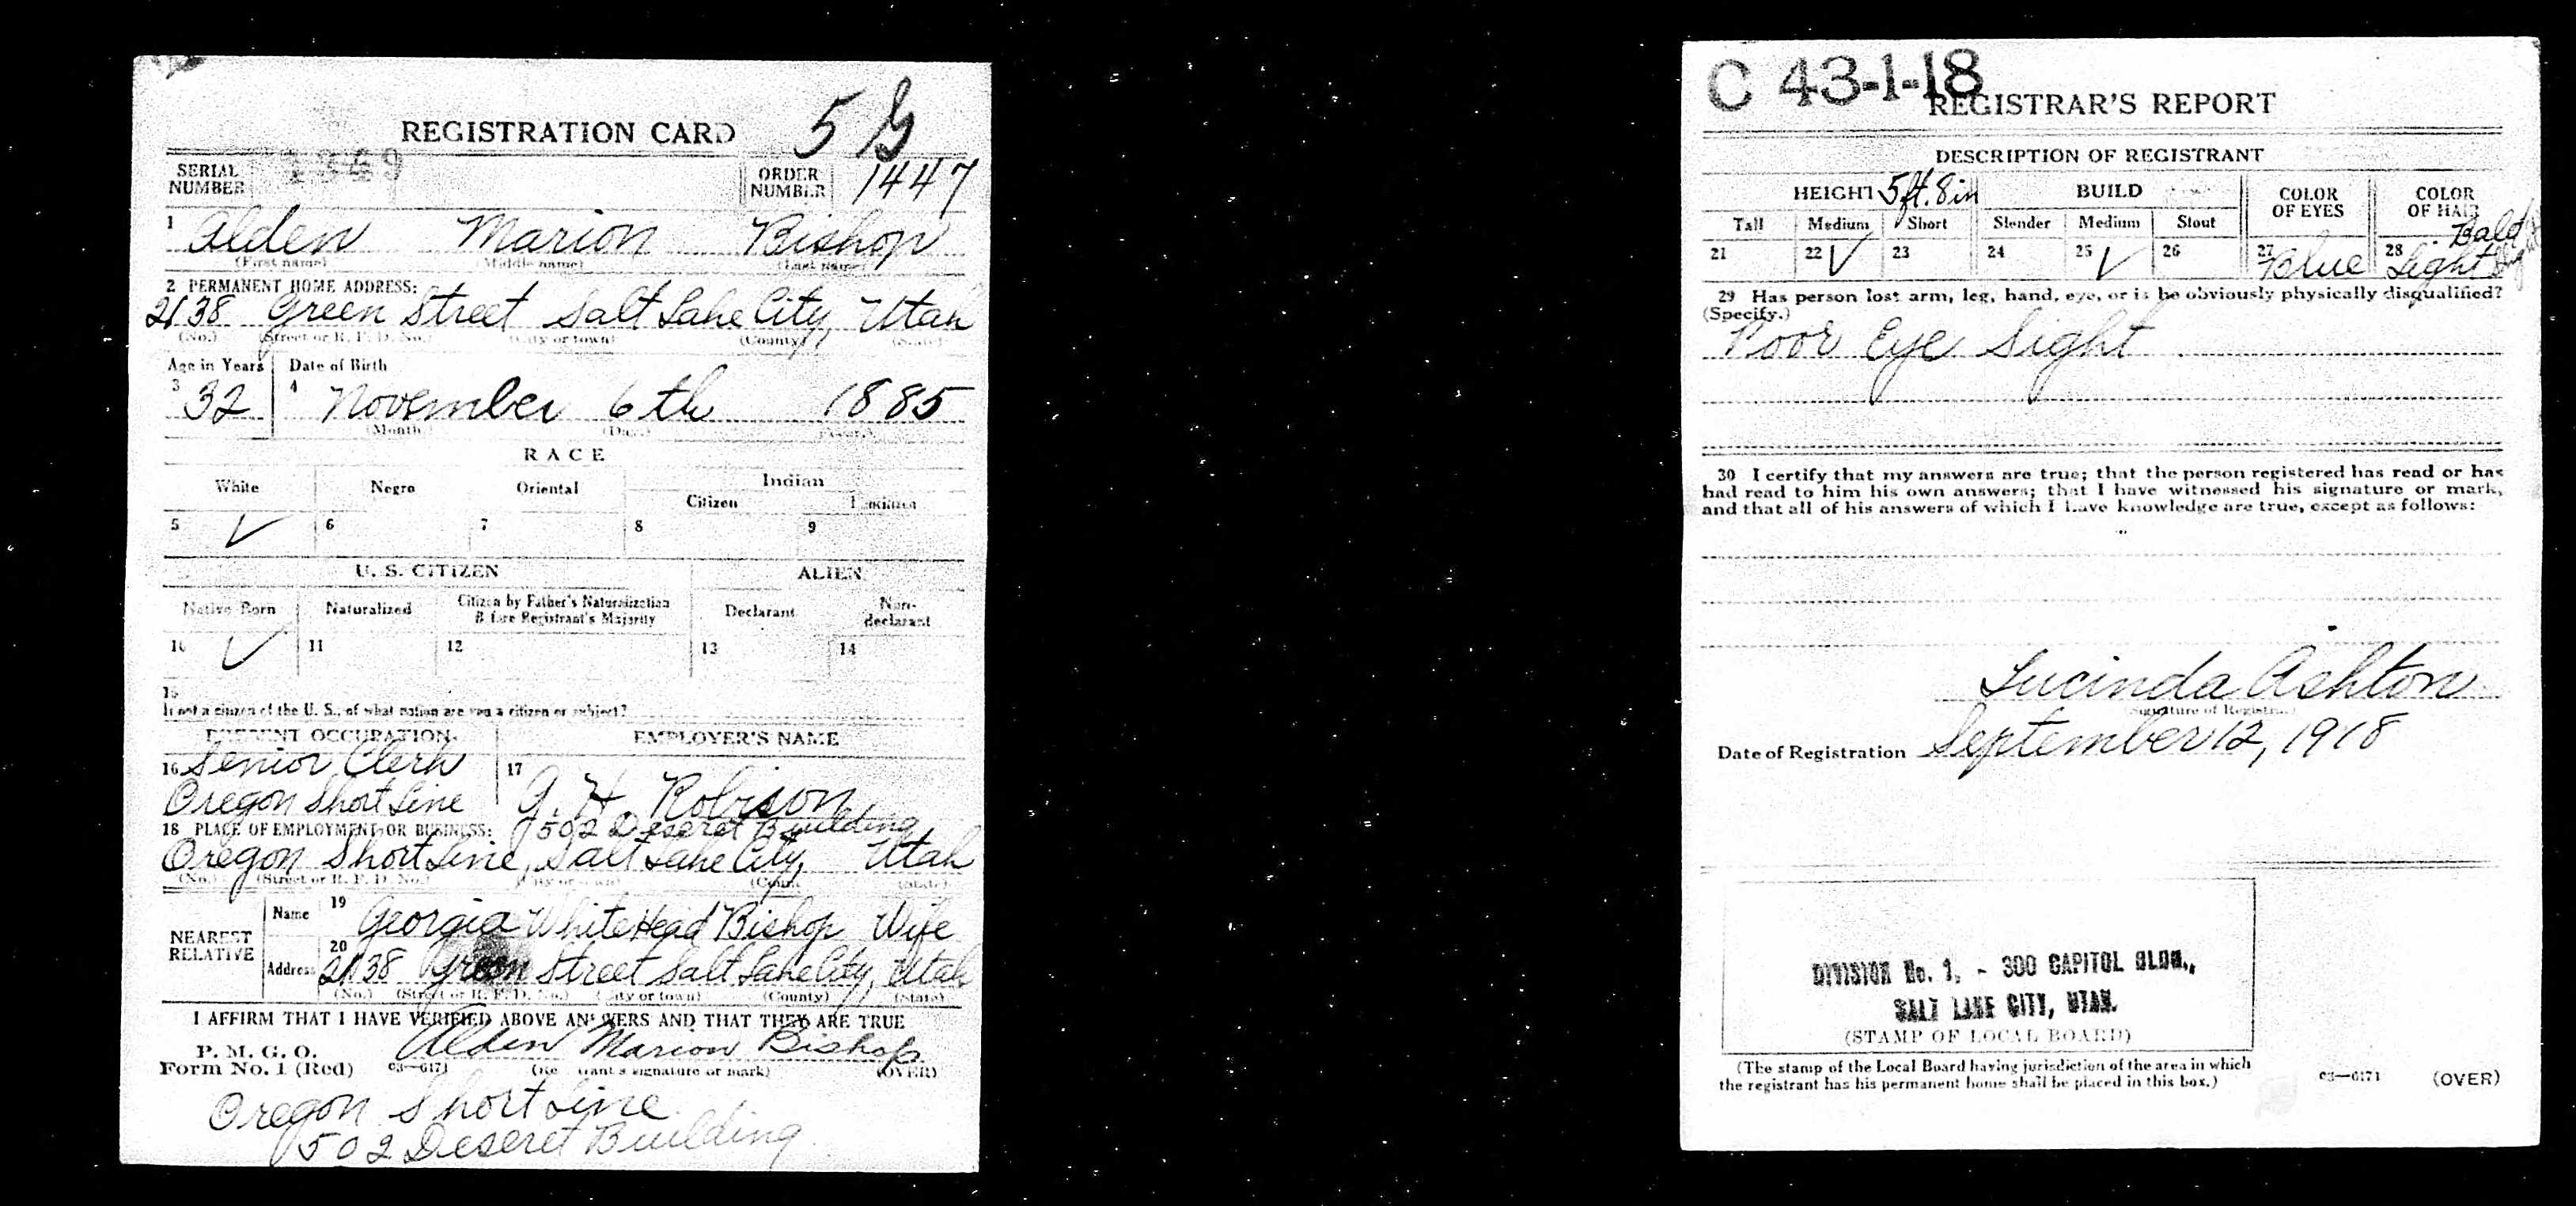 REGISTRATION CARD 5 G
SERIAL NUMBER 1349 ORDER NUMBER 1447
1 Alden Marion Bishop
(First name) (Middle name) (Last name)
2 PERMANENT HOME ADDRESS:
2138 Green Street Salt Lake City, Utah
(No.) (Street or R. F. D. No.) (City or town) (County) (State)
Age in Years Date of Birth
3 32 4 November 6th 1885
(Month) (Day) (Year)
RACE
White Negro Oriental Indian
Citizen Noncitizen
5 ✓ 6 7 8 9
U. S. CITIZEN ALIEN
Native Born Naturalized Citizen by Father's Naturalization Before Registrant's Majority Declarant Non-declarant
10 ✓ 11 12 13 14
15
If not a citizen of the U. S., of what nation are you a citizen or subject?
PRESENT OCCUPATION EMPLOYER'S NAME
16 Senior Clerk 17
Oregon Short Line H. Robison
18 PLACE OF EMPLOYMENT OR BUSINESS: 502 Deseret Building
Oregon Short Line, Salt Lake City, Utah
(No.) (Street or R. F. D. No.) (City or town) (County) (State)
NEAREST RELATIVE
Name 19 Georgia WhiteHead Bishop Wife
Address 20 2138 Green Street Salt Lake City, Utah
(No.) (Street or R. F. D. No.) (City or town) (County) (State)
I AFFIRM THAT I HAVE VERIFIED ABOVE ANSWERS AND THAT THEY ARE TRUE
P. M. G. O.
Form No. 1 (Red) 03—6171 Alden Marion Bishop
(Registrant's signature or mark) (OVER)
Oregon Short Line
502 Deseret Building
C 43-1-18
REGISTRAR'S REPORT
DESCRIPTION OF REGISTRANT
HEIGHT 5 ft. 8 in BUILD COLOR OF EYES COLOR OF HAIR
Tall Medium Short Slender Medium Stout Bald
21 22 ✓ 23 24 25 ✓ 26 27 Blue 28 Light
29 Has person lost arm, leg, hand, eye, or is he obviously physically disqualified?
(Specify.)
Poor Eye Sight
30 I certify that my answers are true; that the person registered has read or has
had read to him his own answers; that I have witnessed his signature or mark,
and that all of his answers of which I have knowledge are true, except as follows:
Lucinda Ashton
(Signature of Registrar)
Date of Registration September 12, 1918
DIVISION No. 1, - 300 CAPITOL BLDG.,
SALT LAKE CITY, UTAH.
(STAMP OF LOCAL BOARD)
(The stamp of the Local Board having jurisdiction of the area in which
the registrant has his permanent home shall be placed in this box.)
03—6171 (OVER)